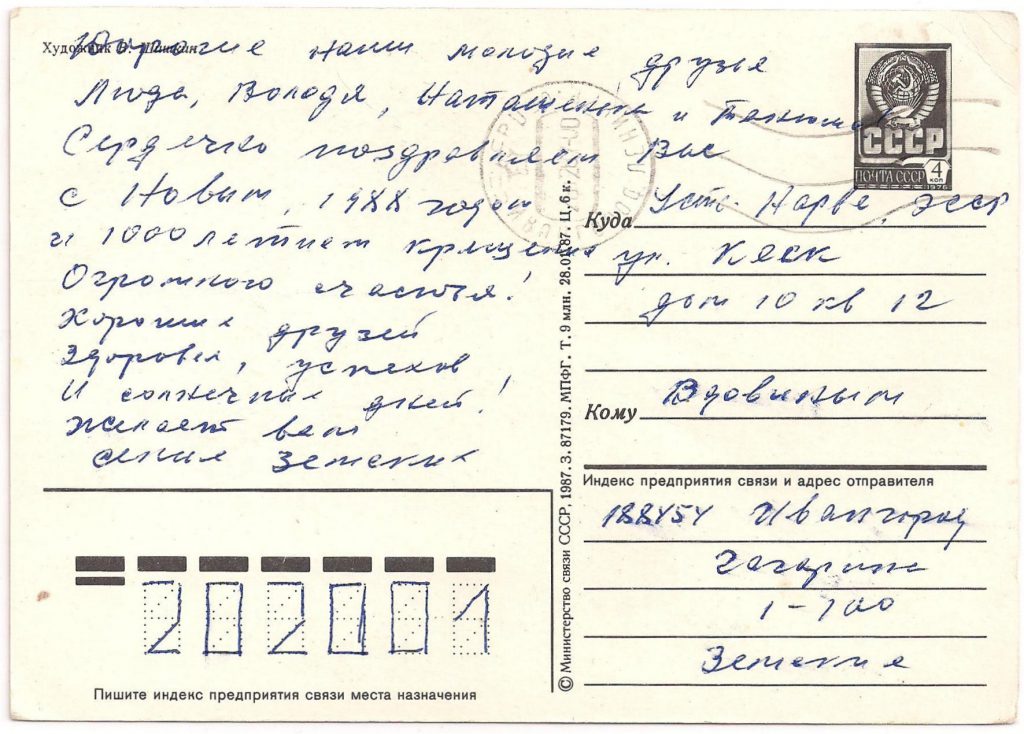 Художник В. Шашкин
Дорогие наши молодые друзья
Люда, Володя, Наташенька и Танюша
Сердечно поздравляем Вас
с Новым, 1988 годом
и 1000летием крещения
Огромного счастья!
Хороших друзей
Здоровья, успехов
И солнечных дней!
Желает вам
семья Земских
СССР
ПОЧТА СССР
4
коп
1976
Куда Усть-Нарва, ЭССР
ул. Кеск
дом 10 кв 12
Кому Вдовиным
Индекс предприятия связи и адрес отправителя
188454 Ивангород
Гагарина
1-100
Земские
© Министерство связи СССР, 1987. З. 87179. МПФГ. Т. 9 млн. 28.01.87. Ц. 6 к.
202001
Пишите индекс предприятия связи места назначения